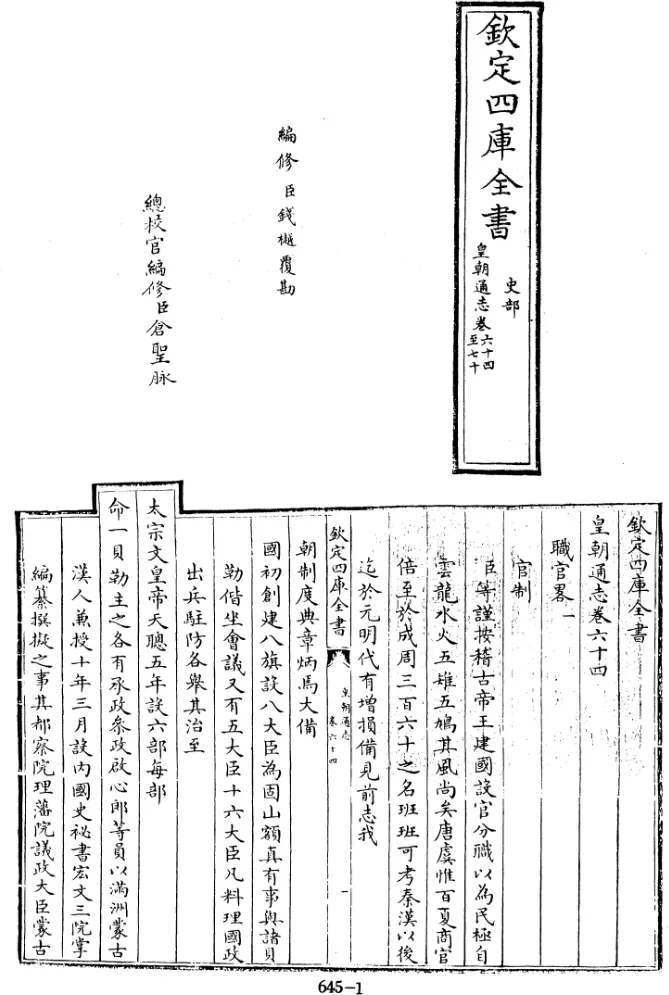 欽定四庫全書
史部
皇朝通志卷六十四
至七十
編修臣錢樾覆勘
總校官編修臣倉聖脉
欽定四庫全書
皇朝通志卷六十四
職官畧一
官制
臣等謹按稽古帝王建國設官分職以為民極自
雲龍水火五雉五鳩其風尚矣唐虞惟百夏商官
倍至於成周三百六十之名班班可考秦漢以後
迄於元明代有增損備見前志我
欽定四庫全書
皇朝通志
卷六十四
一
朝制度典章炳焉大備
國初創建八旗設八大臣為固山額真有事與諸貝
勒偕坐會議又有五大臣十六大臣凡料理國政
出兵駐防各舉其治至
太宗文皇帝天聰五年設六部每部
命一貝勒主之各有承政叅政啟心郎等員以滿洲蒙古
漢人兼授十年三月設内國史祕書宏文三院掌
編纂撰擬之事其都察院理藩院議政大臣蒙古
645-1